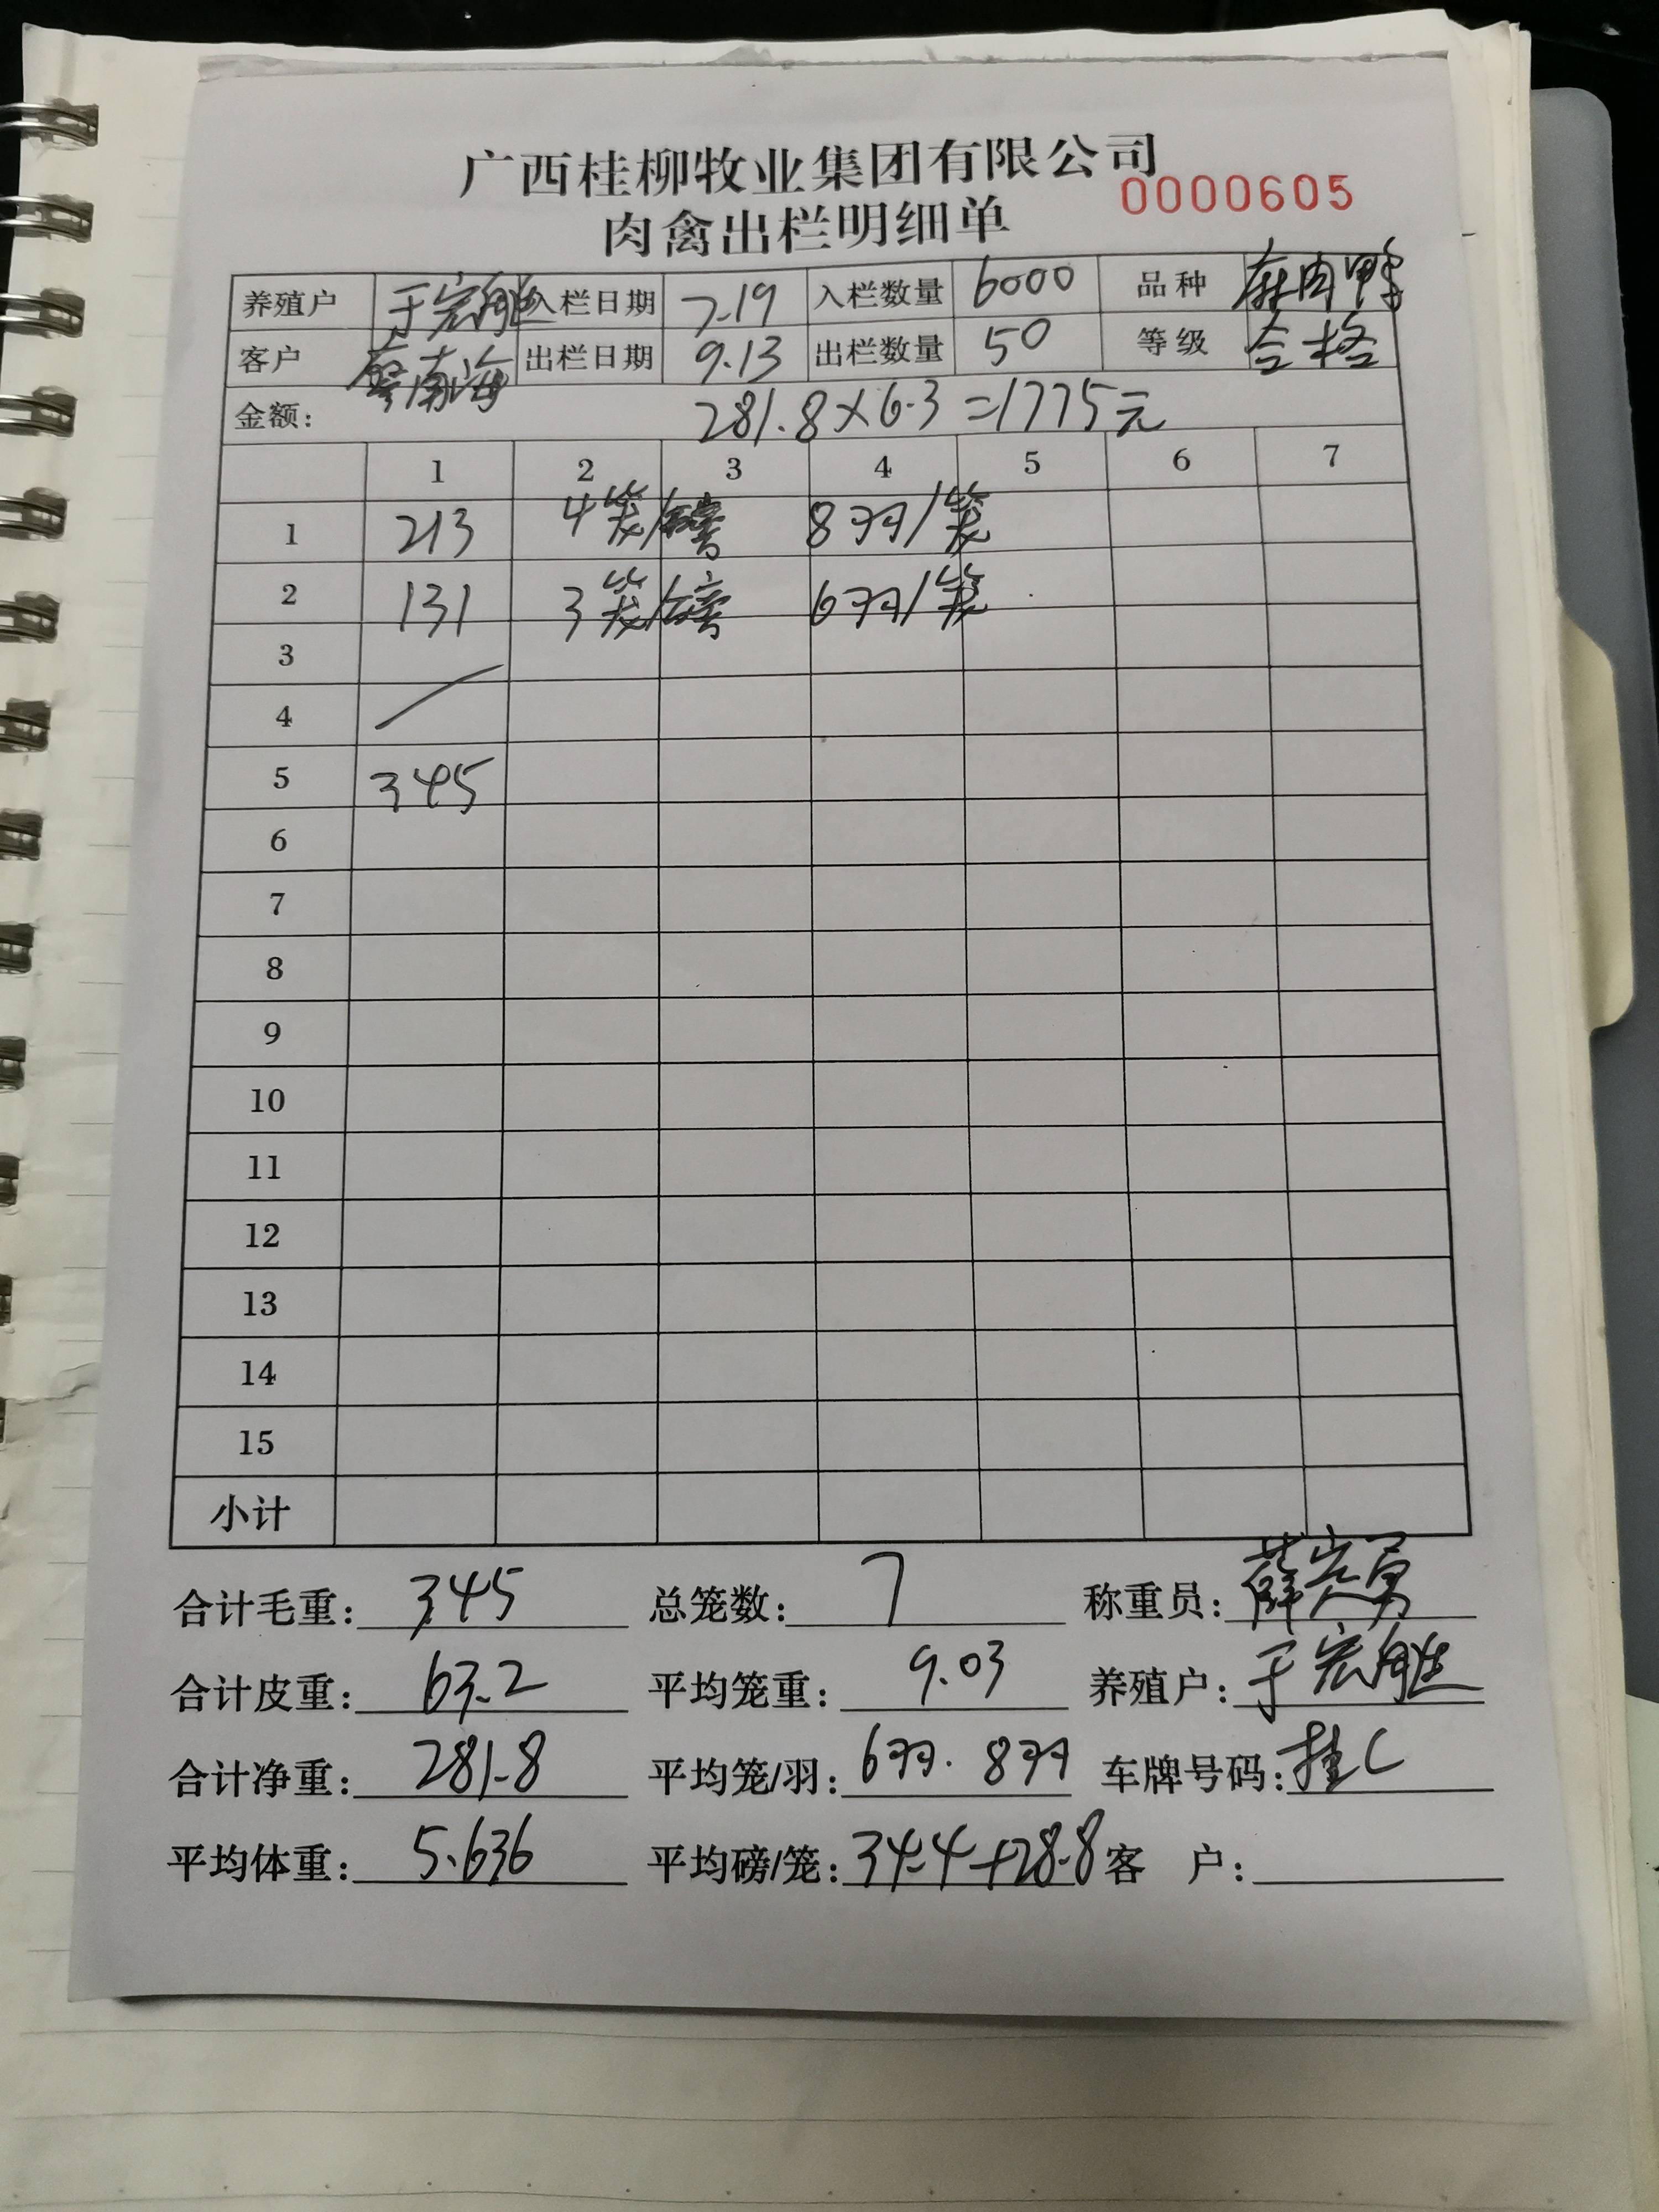 广西桂柳牧业集团有限公司
0000605
肉禽出栏明细单
养殖户 于宏胜 入栏日期 7.19 入栏数量 6000 品种 麻肉鸭
客户 廖南海 出栏日期 9.13 出栏数量 50 等级 合格
金额: 281.8×6.3=1775元
1 2 3 4 5 6 7
1 213 4笼/磅 8羽/笼
2 131 3笼/磅 6羽/笼
3
4
5 345
6
7
8
9
10
11
12
13
14
15
小计
合计毛重: 345 总笼数: 7 称重员: 薛宾勇
合计皮重: 63.2 平均笼重: 9.03 养殖户: 于宏胜
合计净重: 281.8 平均笼/羽: 6羽. 8羽 车牌号码: 桂C
平均体重: 5.636 平均磅/笼: 34.4+28.8 客 户: